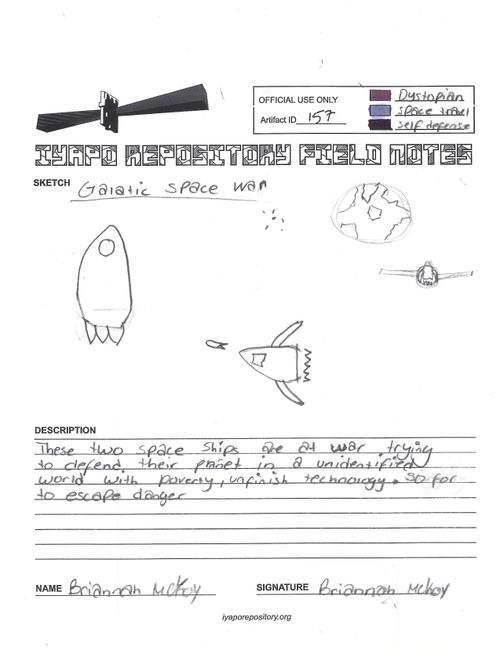 OFFICIAL USE ONLY
Artifact ID 157
Dystopian
space travel
self defense
IYAPO REPOSITORY FIELD NOTES
SKETCH Galatic space war
DESCRIPTION
These two space ships are at war trying
to defend their planet in a unidentified
world with poverty, unfinish technology. so for
to escape danger
NAME Briannah McKoy SIGNATURE Briannah McKoy
iyaporepository.org